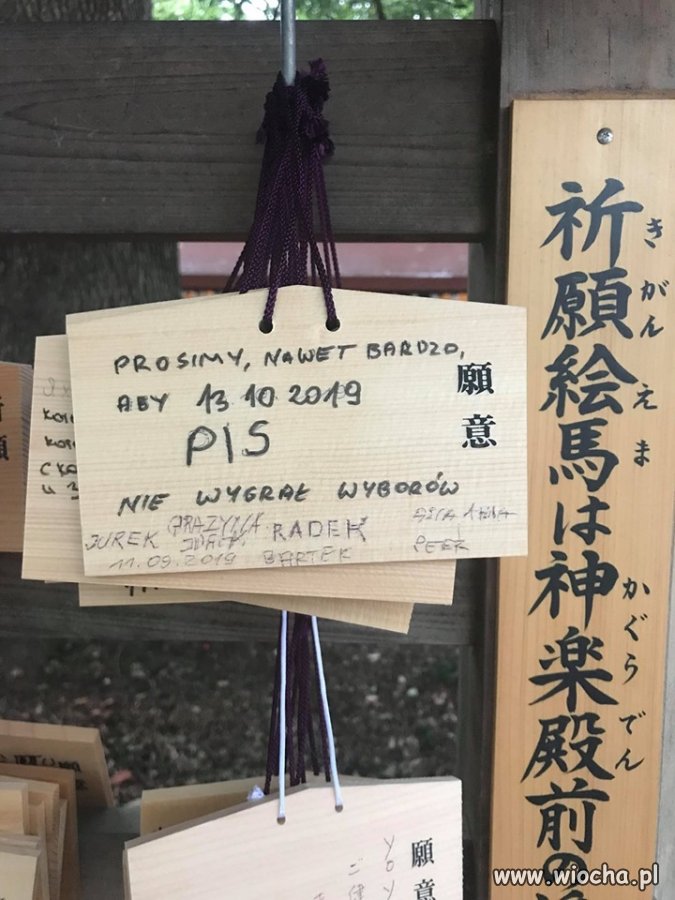 PROSIMY, NAWET BARDZO,
ABY 13.10.2019
PIS
NIE WYGRAŁ WYBORÓW
GRAŻYNA
JUREK RADEK
11.09.2019 BARTEK
PETER
願意
祈願絵馬は神楽殿前の
きがんえま
かぐらでん
願意
www.wiocha.pl